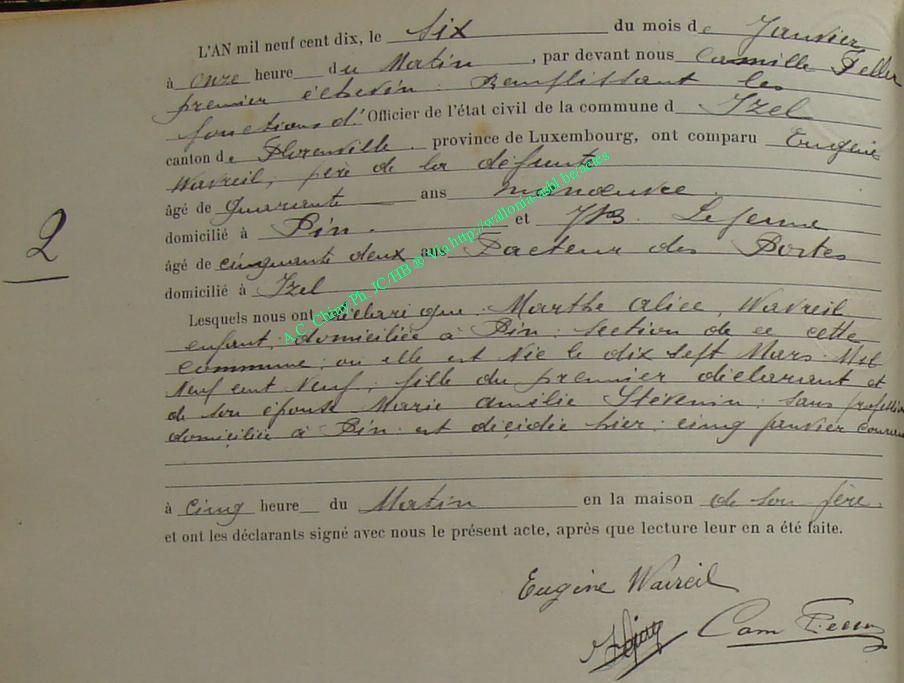 L'AN mil neuf cent dix, le six du mois de Janvier
à onze heure du Matin, par devant nous Camille Feller
premier échevin. Remplissant les
fonctions d'Officier de l'état civil de la commune d Izel
canton de Florenville. province de Luxembourg, ont comparu Eugène
Wavreil, père de la défunte
âgé de quarante ans manoeuvre.
domicilié à Pin. et JPB. Lejeune
âgé de cinquante deux ans Facteur des Postes
domicilié à Izel
2
Lesquels nous ont déclaré que Marthe Alice, Wavreil
enfant, domiciliée à Pin. section de ce cette
commune, ou elle est née le dix sept Mars Mil
neuf cent neuf, fille du premier déclarant et
de son épouse Marie Amélie Stévenin, sans profession
domiciliée à Pin. est décidée hier, cinq janvier courant
à cinq heure du Matin en la maison de son père.
et ont les déclarants signé avec nous le présent acte, après que lecture leur en a été faite.
Eugène Wavreil
Lejeune Cam Feller
A.C. Chiny Ph. JC/HB ® Via http://wallonia-asbl.be/actes